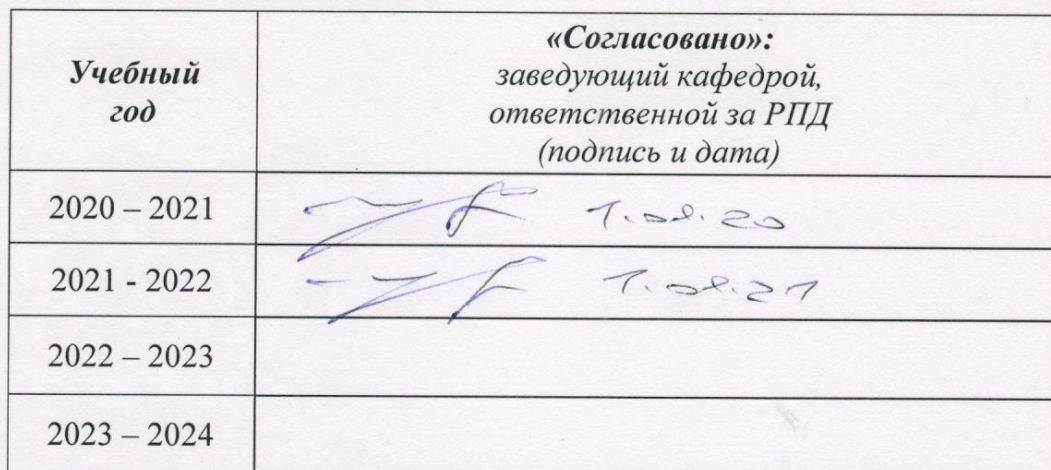 Учебный
год
«Согласовано»:
заведующий кафедрой,
ответственной за РПД
(подпись и дата)
2020 – 2021
1.09.20
2021 - 2022
1.09.21
2022 – 2023
2023 – 2024